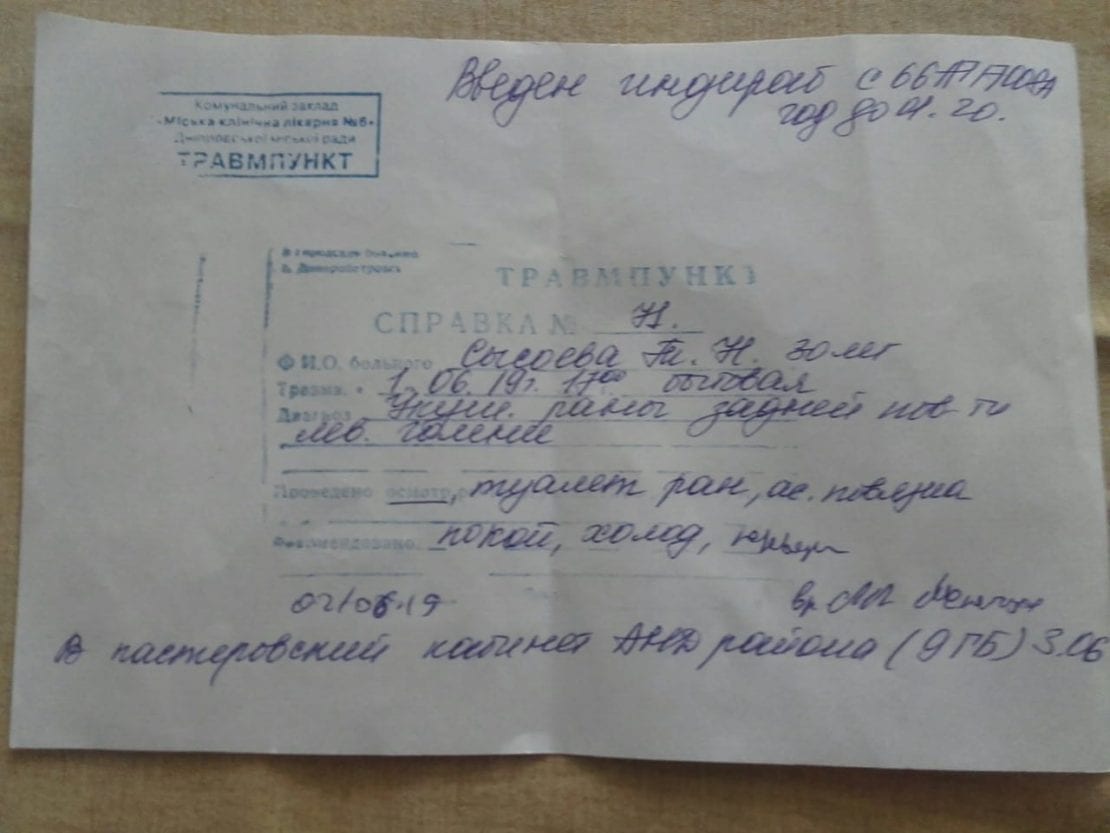 Введен индираб с 66А
год до 01.20.
Комунальний заклад
«Міська клінічна лікарня №6»
Дніпровської міської ради
ТРАВМПУНКТ
ТРАВМПУНКТ
СПРАВКА № Н.
Ф.И.О. больного Сысоева Т. Н. 30 лет
Травма 1.06.19г. 17⁰⁰ бытовая
Диагноз Укуш. раны задней пов-ти
лев. голени
Проведено осмотр, туалет ран, ас. повязка
Рекомендовано: покой, холод,
02/06.19 вр.
В пастеровский кабинет АНД района (9ГБ) 3.06